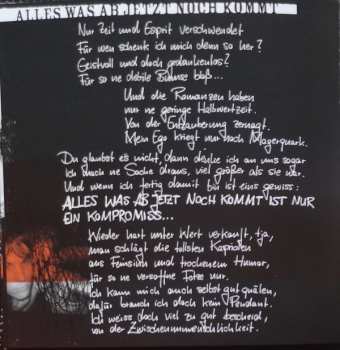 ALLES WAS AB JETZT NOCH KOMMT
Nur Zeit und Esprit verschwendet
Für wen schenk ich mich denn so her?
Geistvoll und doch gedankenlos?
Für so ne debile Bühne bloß...
Und die Romanzen haben
nur ne geringe Halbwertzeit.
Von der Entzauberung zernagt.
Mein Ego kriegt nur noch Magerquark.
Du glaubst es nicht, dann denke ich an uns sogar
Ich mach ne Sache draus, viel größer als sie war.
Und wenn ich fertig damit bin ist eins gewiss:
ALLES WAS AB JETZT NOCH KOMMT IST NUR
EIN KOMPROMISS...
Wieder hart unter Wert verkauft, tja,
man schlägt die tollsten Kapriolen
aus Feinsinn und trockenem Humor,
für so ne versoffne Fotze nur.
Ich kann mich auch selbst gut quälen,
dafür brauch ich doch kein Pendant.
Ich weiss doch viel zu gut bescheid,
von der Zwischenunmenschlichkeit.